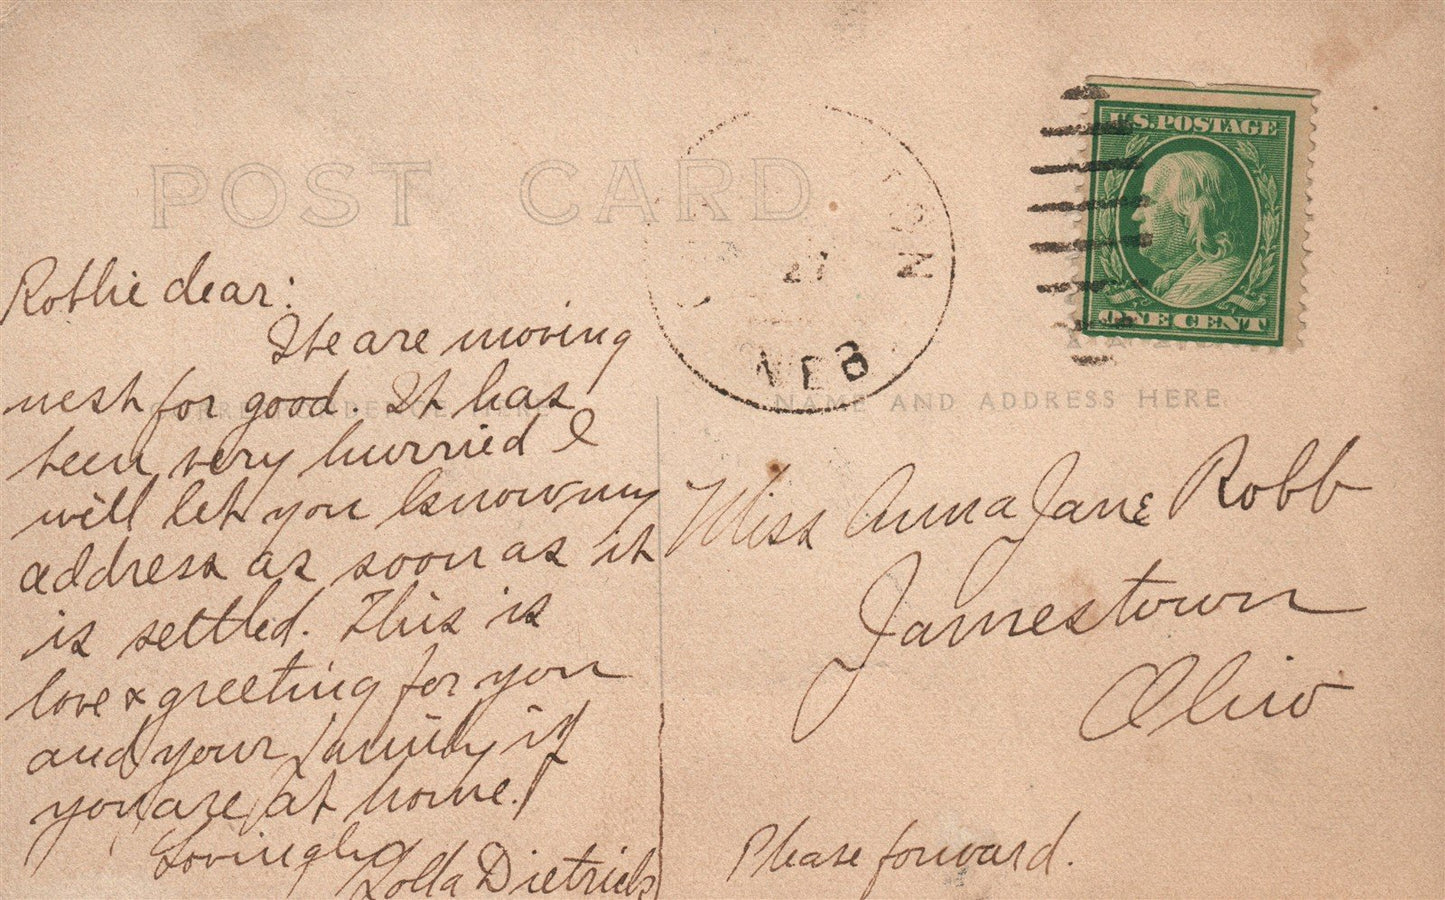 POST CARD
U.S. POSTAGE
ONE CENT
27
NEB
CORRESPONDENCE HERE
NAME AND ADDRESS HERE
Robbie dear:
We are moving
west for good. It has
been very hurried I
will let you know my
address as soon as it
is settled. This is
love & greeting for you
and your family if
you are at home.
Lovingly
Lolla Dietrich
Miss Anna Jane Robb
Jamestown
Ohio
Please forward.